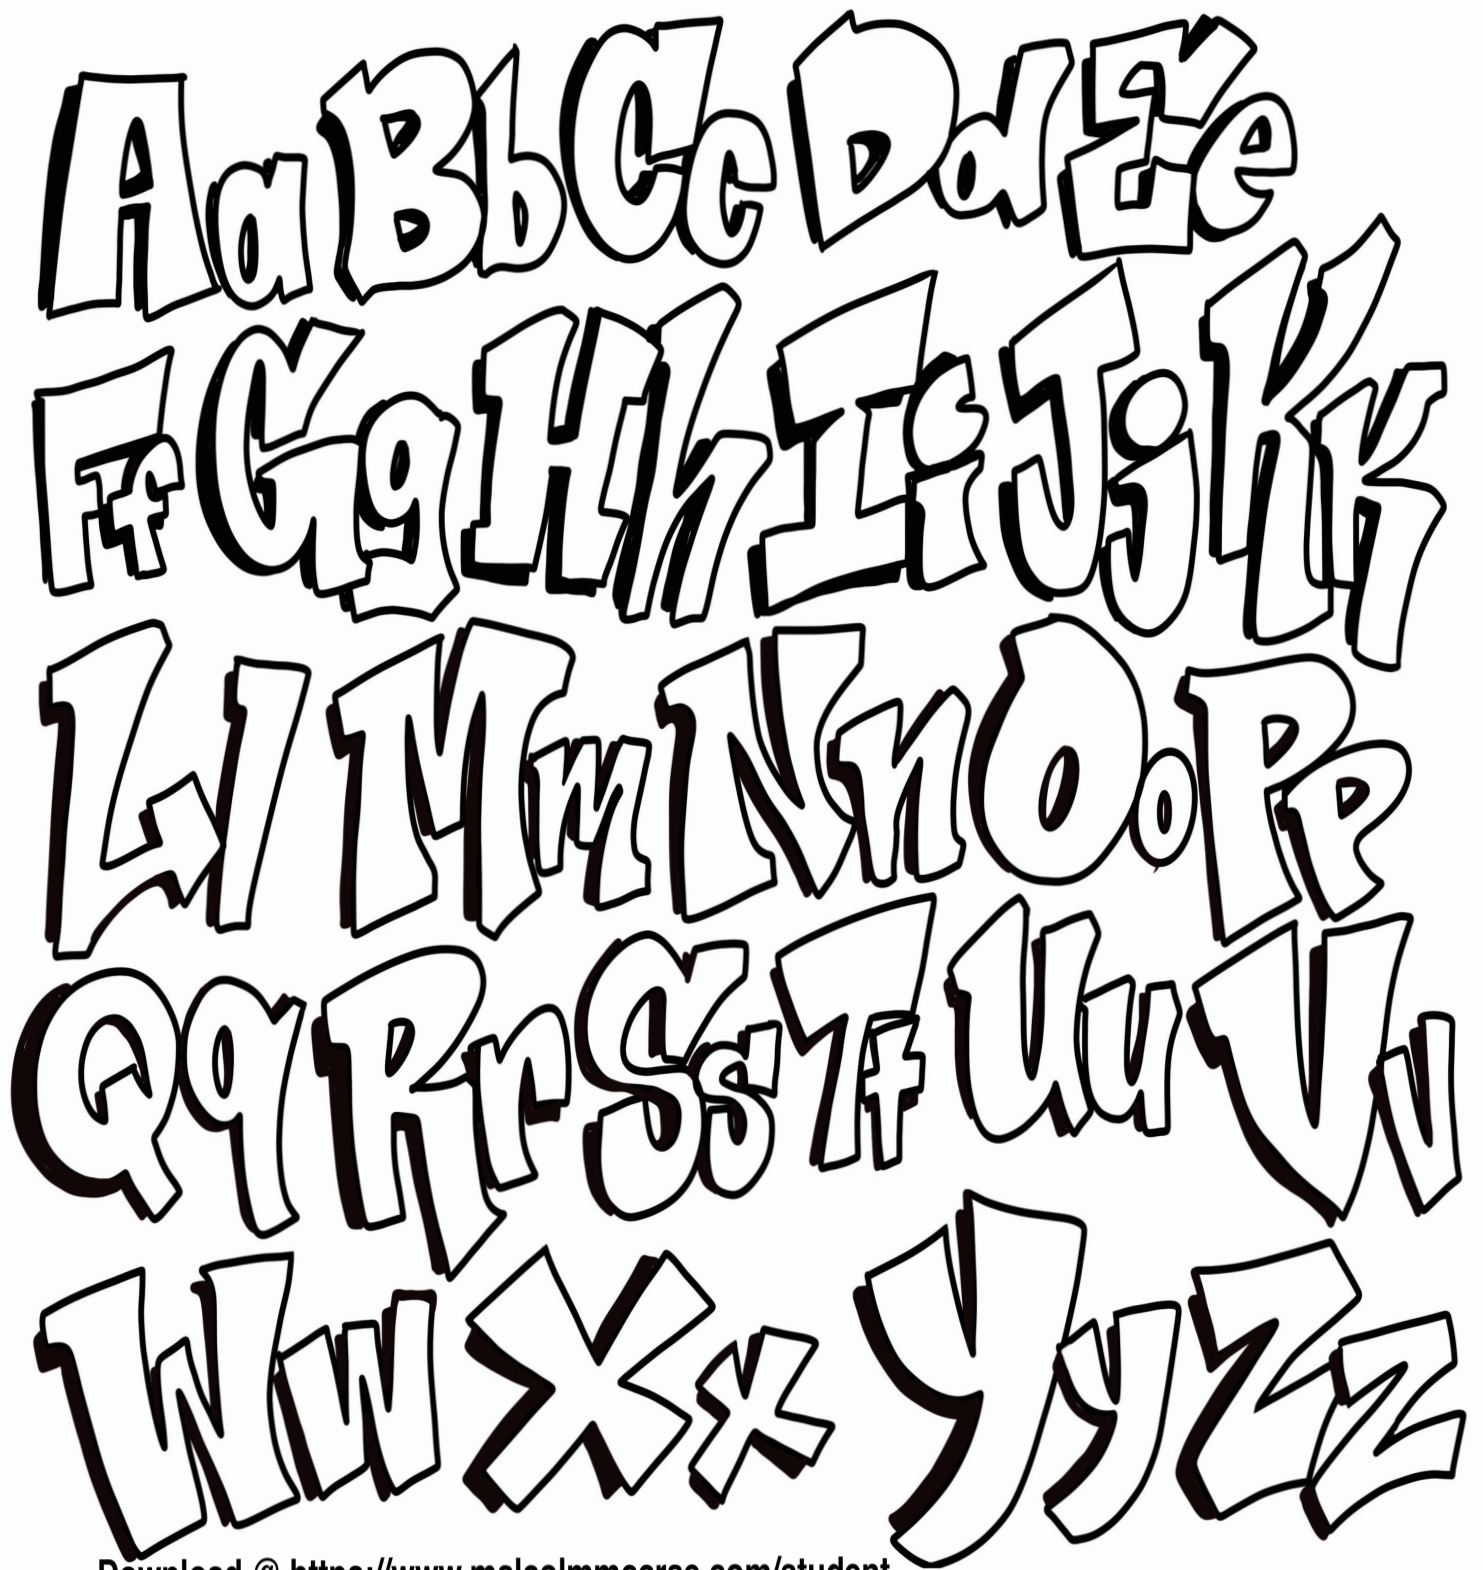 Aa Bb Cc Dd Ee
Ff Gg Hh Ii Jj Kk
Ll Mm Nn Oo Pp
Qq Rr Ss Tt Uu Vv
Ww Xx Yy Zz
Download @ https://www.malcolmmccrae.com/student